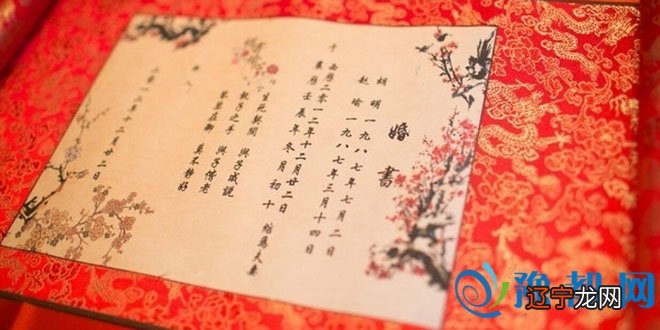 婚書
胡明一九八七年七月二日
赵瑜一九八七年三月十四日
西曆二零一二年十二月廿二日
農曆壬辰年冬月初十 結爲夫妻
生死契闊 與子成說
執子之手 與子偕老
琴瑟在御 莫不靜好
二零一二年十二月廿二日
辽宁龙网